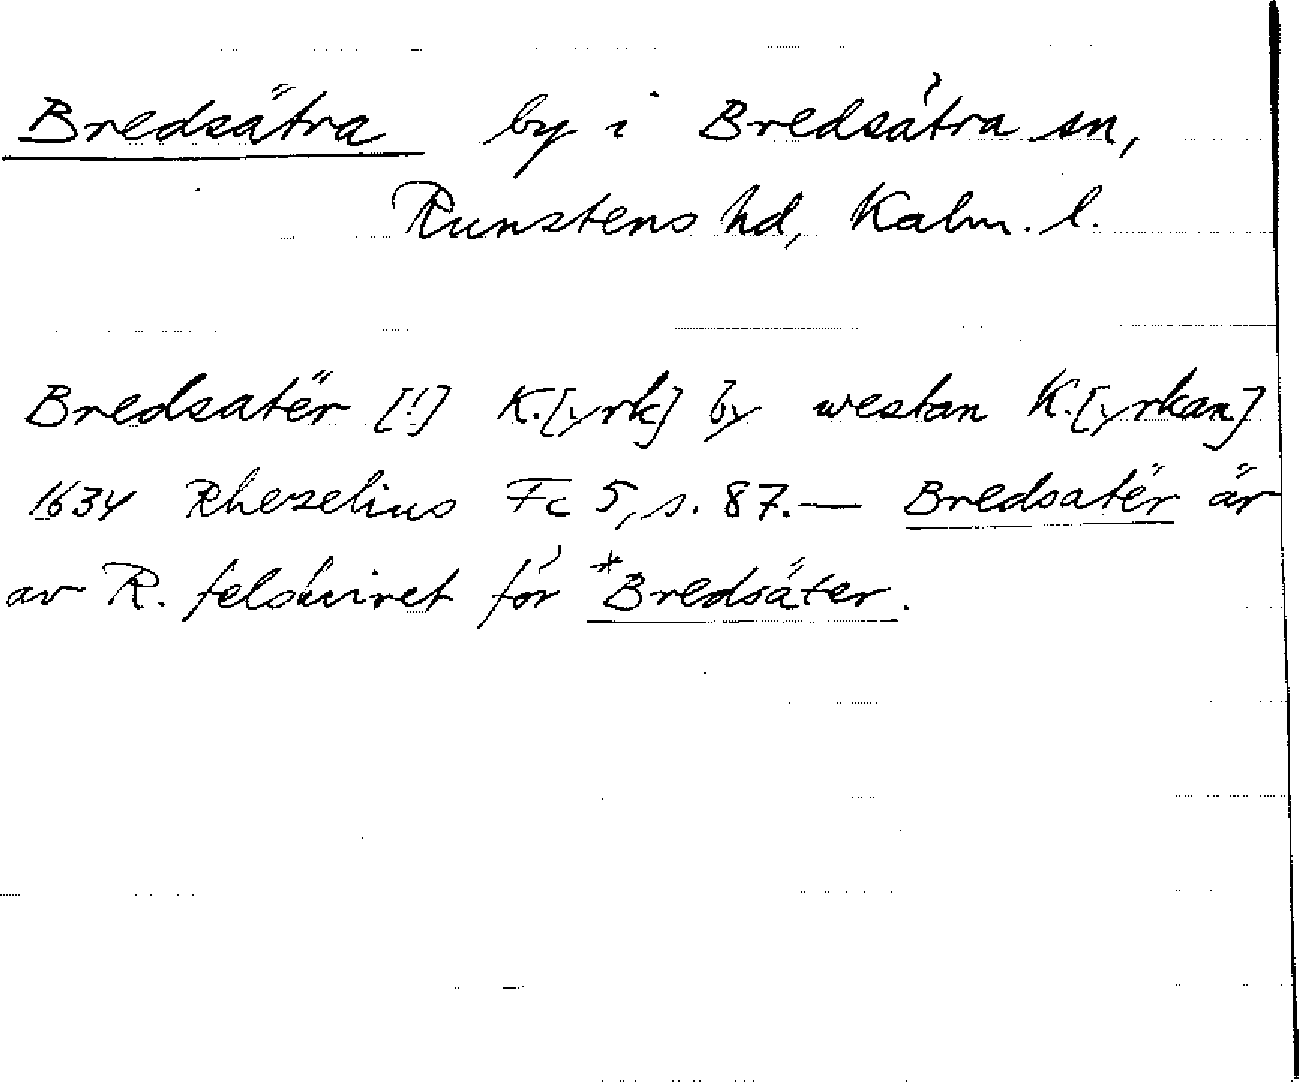 Bredsätra by i Bredsätra sn,
Runstens hd, Kalm. l.
Bredsatër [!] K.[yrk] by westan K.[yrkan]
1634 Rhezelius Fc 5, s. 87.— Bredsatër är
av R. felskrivet för *Bredsäter.